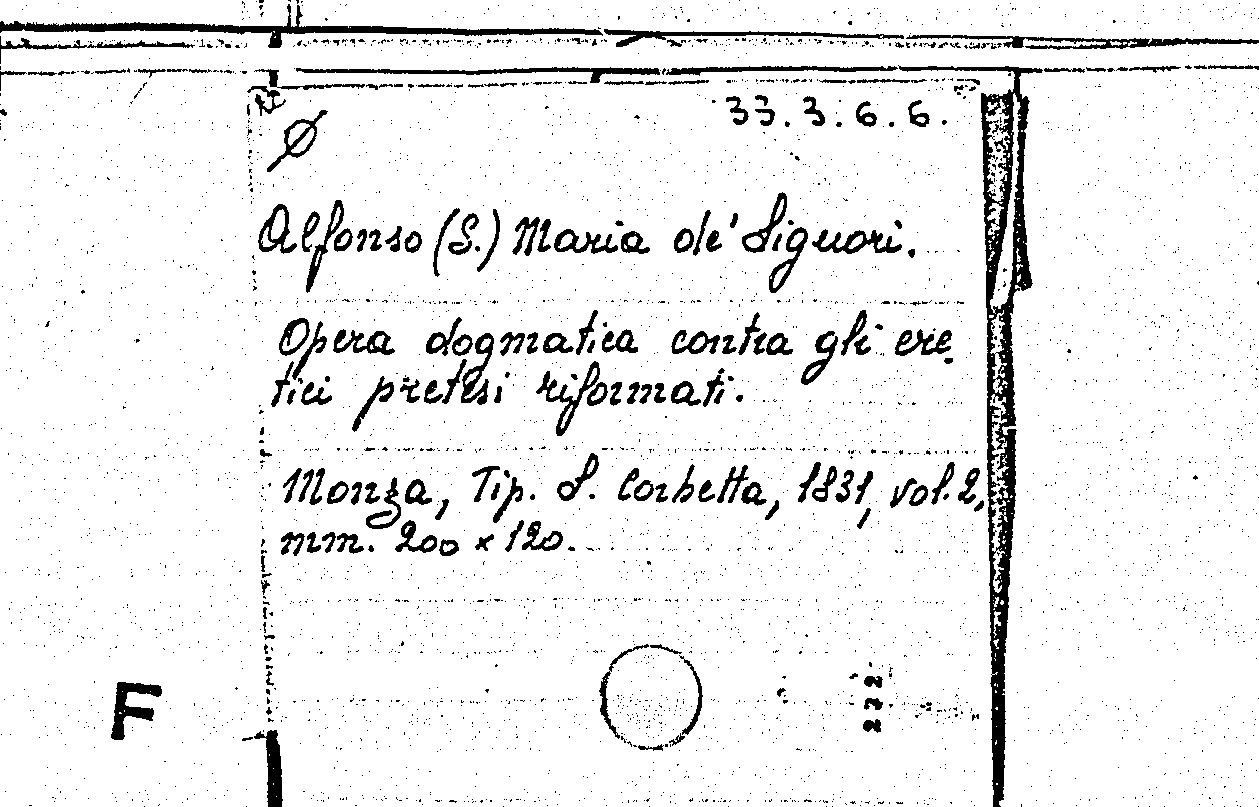 33.3.6.6.
Ø
Alfonso (S.) Maria de' Liguori.
Opera dogmatica contra gli ere
tici pretesi riformati.
Monza, Tip. L. Corbetta, 1831, vol. 2,
mm. 200 x 120.
F
232